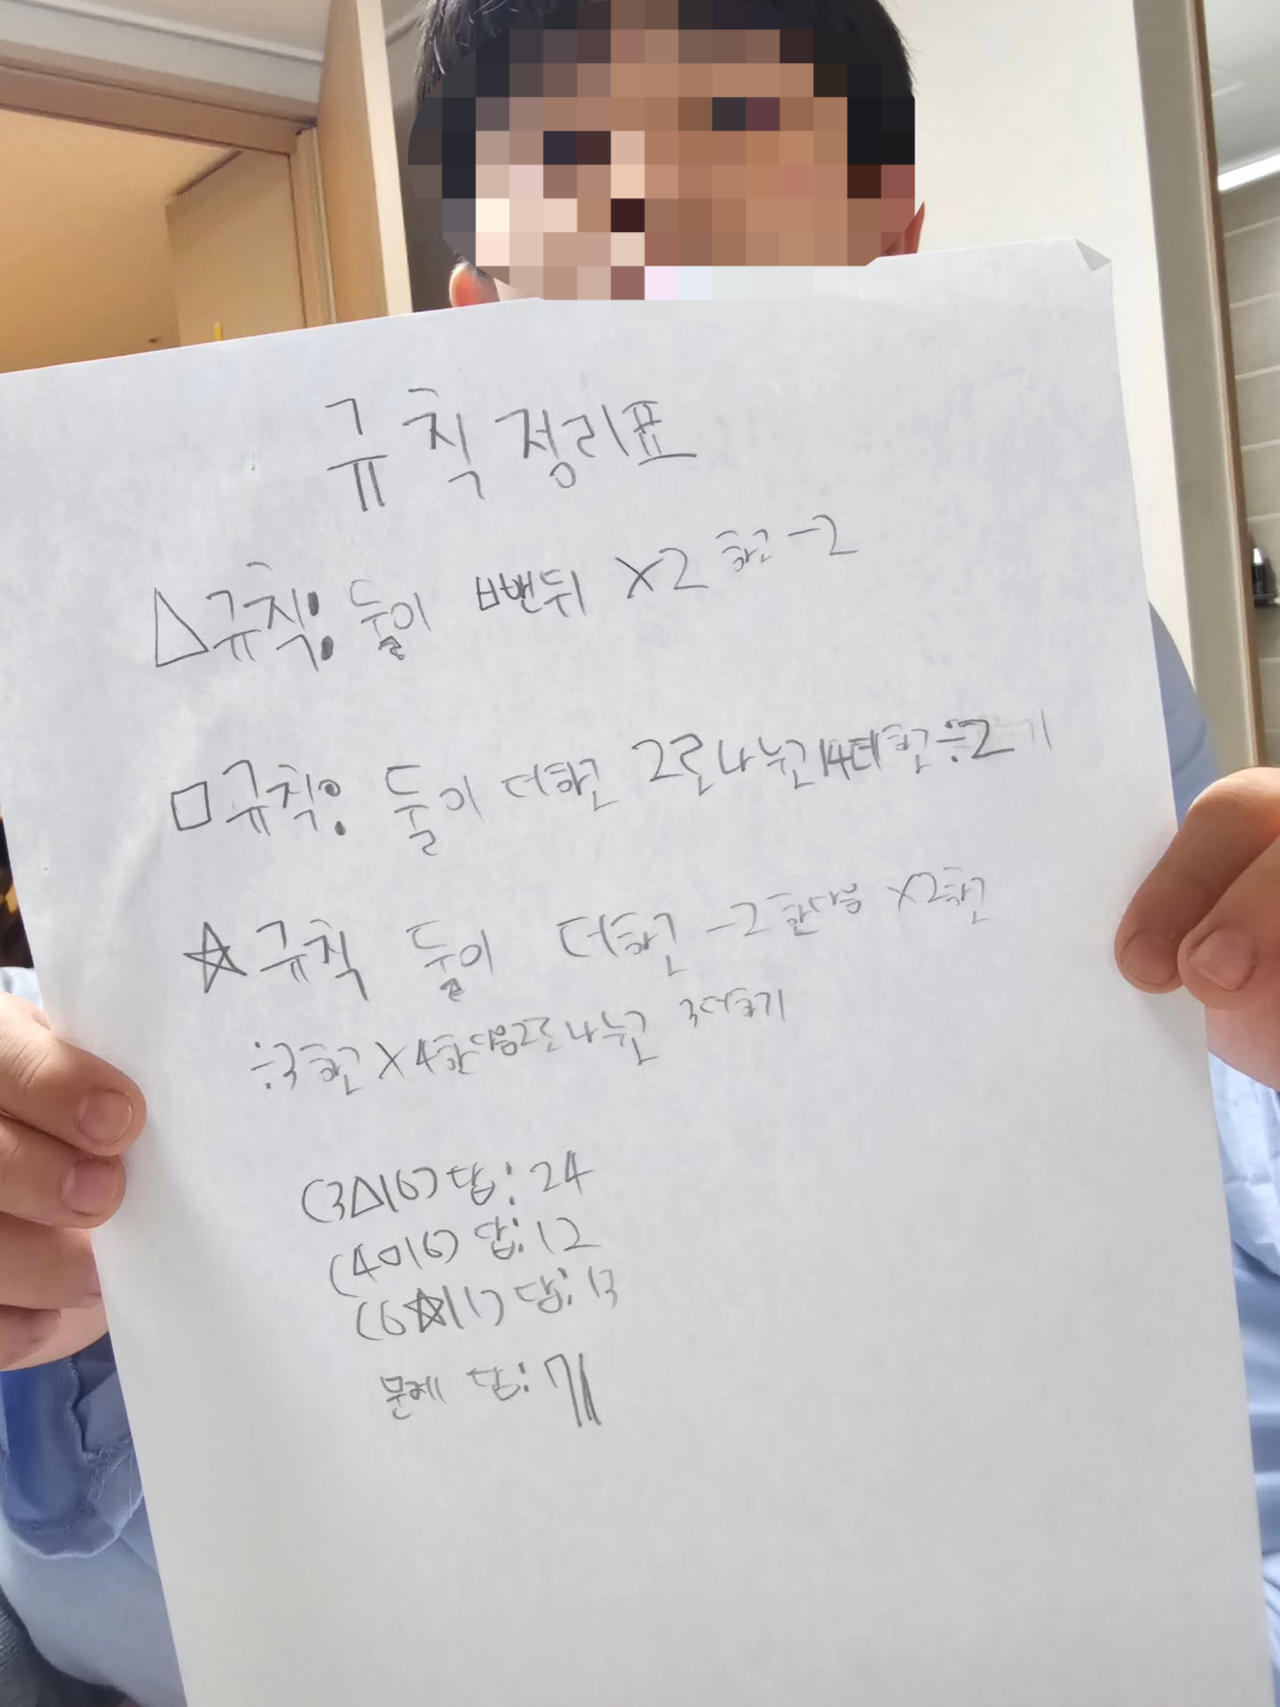 규칙정리표
△규칙: 둘이 뺀뒤 ×2 하고 -2
□규칙: 둘이 더하고 2로나누고14더하고÷2
☆규칙 둘이 더하고 -2한다음 ×2하고
÷3하고 ×4한다음2로나누고 3더하기
(3△16) 답: 24
(4□16) 답: 12
(6☆11) 답: 13
문제 답: